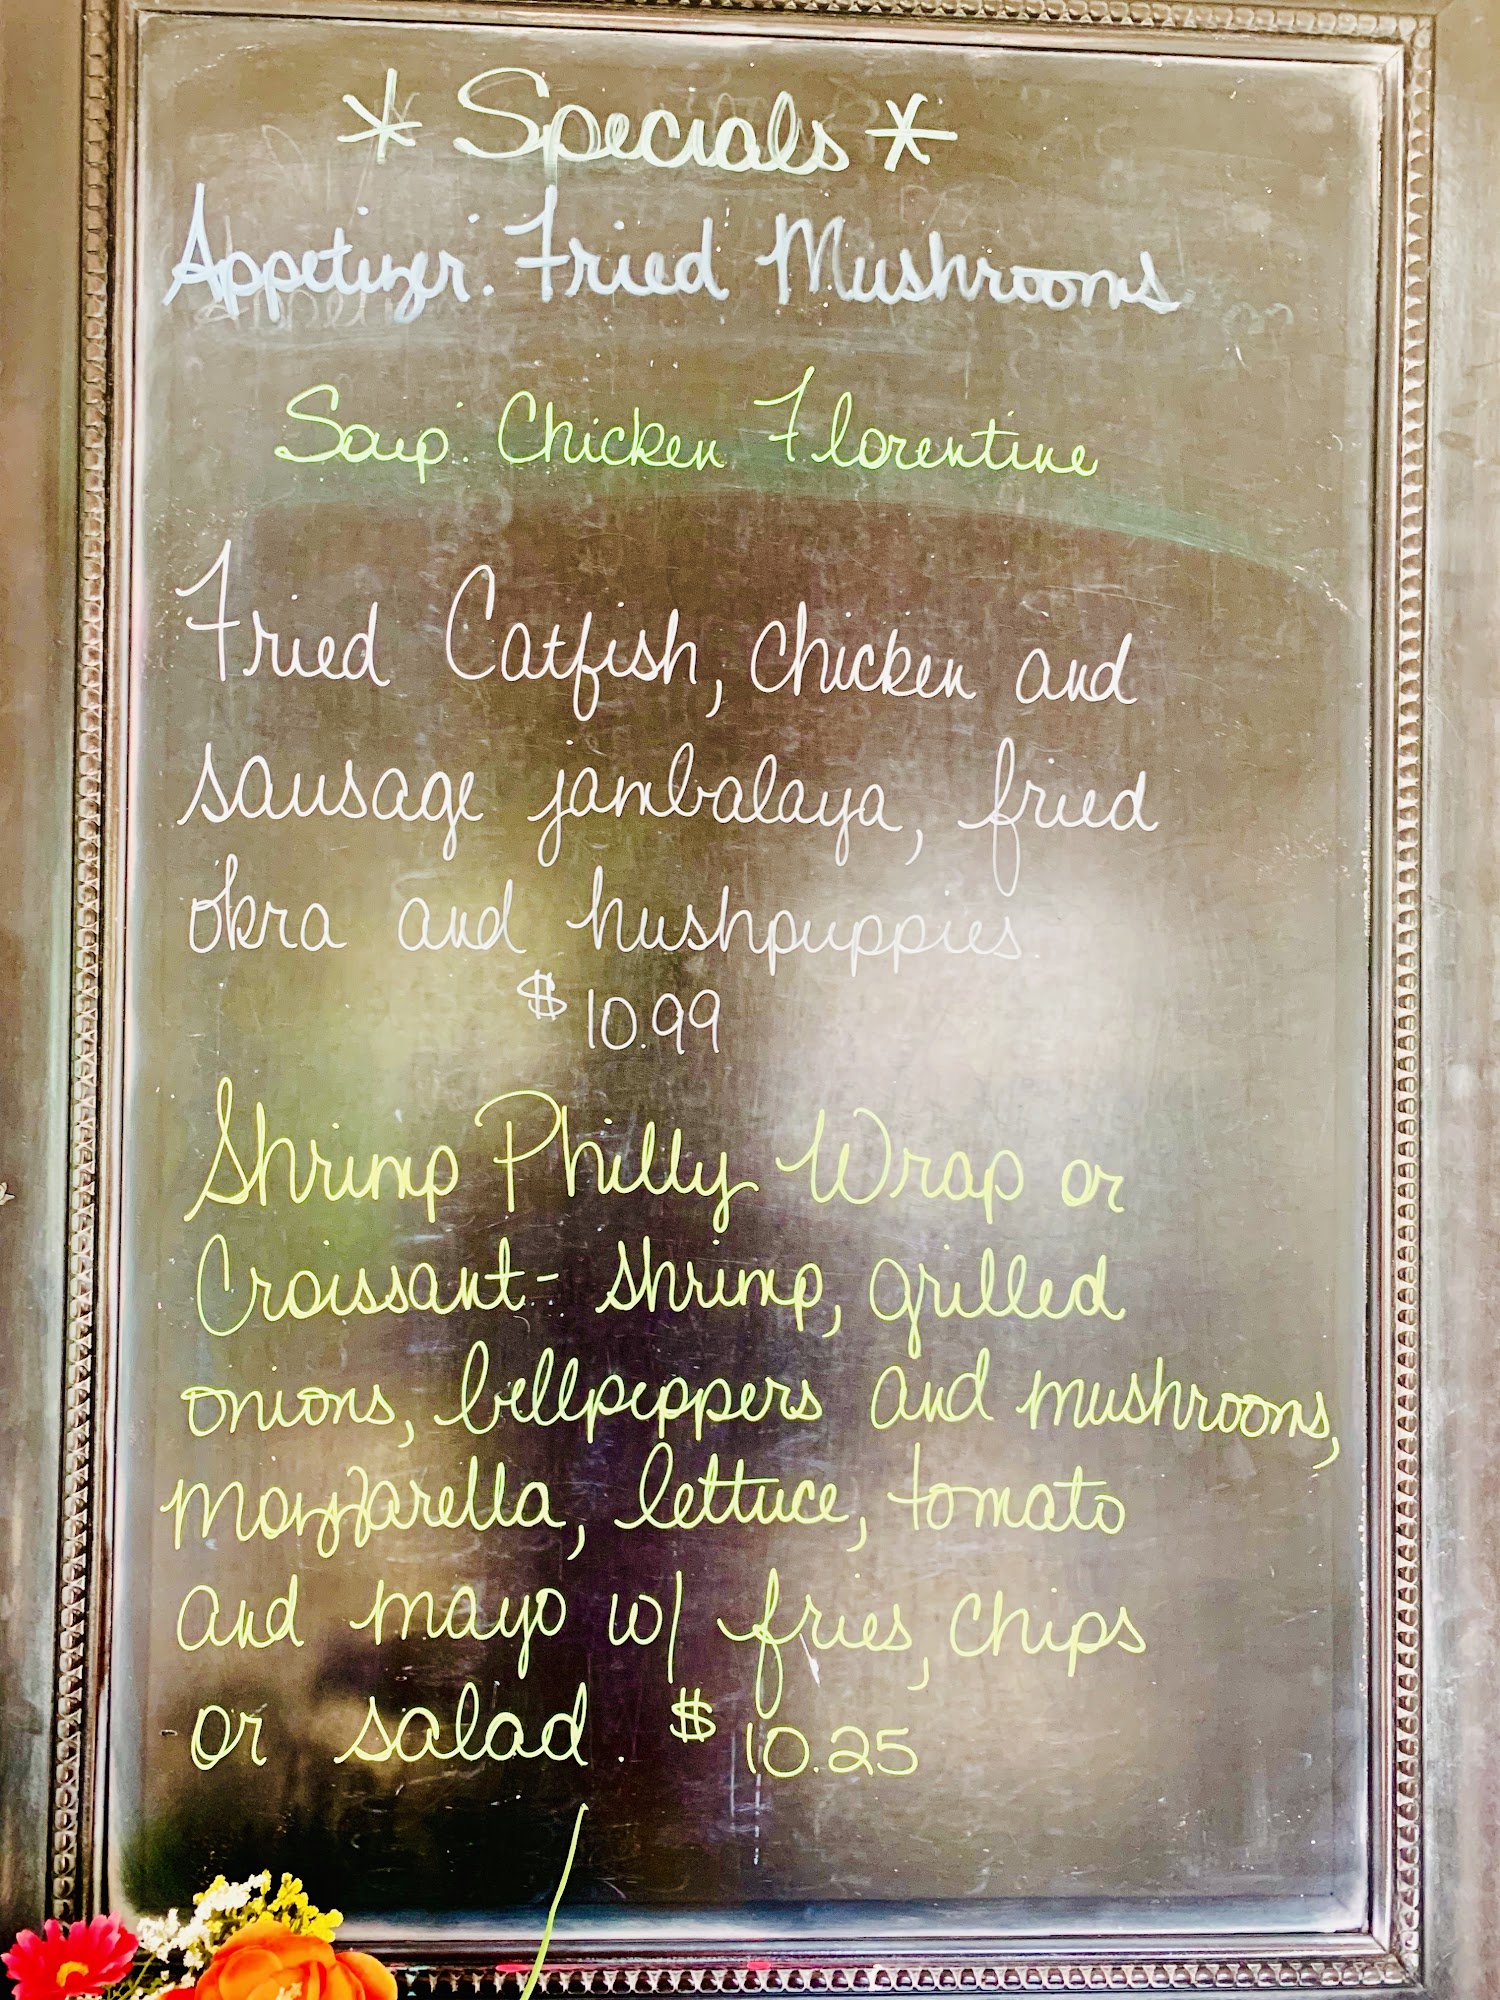 * Specials *
Appetizer: Fried Mushrooms
Soup: Chicken Florentine
Fried Catfish, chicken and
sausage jambalaya, fried
okra and hushpuppies
$10.99
Shrimp Philly Wrap or
Croissant- shrimp, grilled
onions, bellpeppers and mushrooms,
mozzarella, lettuce, tomato
and mayo w/ fries, chips
or salad. $10.25